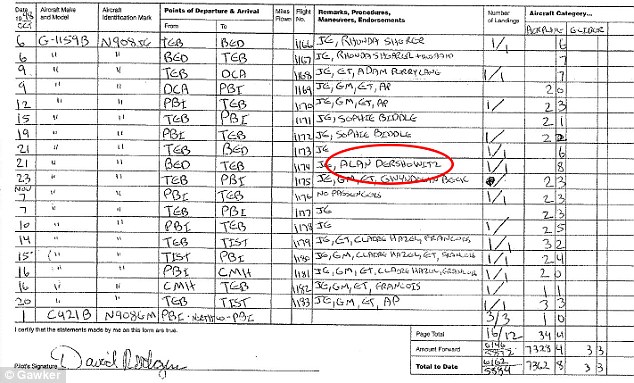 Date 1998 Aircraft Make and Model Aircraft Identification Mark Points of Departure & Arrival From To Miles Flown Flight No. Remarks, Procedures, Maneuvers, Endorsements Number of Landings Aircraft Category... AIRPLANE GLIDER
OCT
6 G-1159B N908JE TEB BED 1166 JE, RHONDA SHERER 1/1 6
6 " " BED TEB 1167 JE, RHONDA SHERER 7
9 " " TEB DCA 1168 JE, ET, ADAM PERRY LANG 1/1 7
9 " " DCA PBI 1169 JE, GM, ET, AP 2 0
12 " " PBI TEB 1170 JE, GM, ET, AP 1/ 2 3
15 " " TEB PBI 1171 JE, SOPHIE BIDDLE 2 1
19 " " PBI TEB 1172 JE, SOPHIE BIDDLE 1/ 2 2
21 " " TEB BED 1173 JE 1/ 6
21 " " BED TEB 1174 JE, ALAN DERSHOWITZ 1/1 8
23 " " TEB PBI 1175 JE, GM, ET, GWENDOLYN BECK 2 3
NOV
7 " " PBI TEB 1176 NO PASSENGERS 1/1 2 3
7 " " TEB PBI 1177 JE 2 3
10 " " PBI TEB 1178 JE 1/ 2 5
14 " " TEB TIST 1179 JE, ET, CLAIRE HAZEL, FRANCOIS 1/1 3 2
15 " " TIST PBI 1180 JE, GM, CLAIRE HAZEL, ET, 1/1 2 4
16 " " PBI CMH 1181 JE, GM, ET, CLAIRE HAZEL, FRANCOIS 1/1 2 0
16 " " CMH TEB 1182 JE, GM, ET, FRANCOIS 1/ 1 1
20 " " TEB TIST 1183 JE, GM, ET, AP 1/1 3 3
1 C421B N908GM PBI PBI 3/3 1 0
I certify that the statements made by me on this form are true.
Page Total 16/12 34 4
Amount Forward 6146 5572 7328 4 3 3
Total to Date 6162 5584 7362 8 3 3
Pilot's Signature David Rodgers
© Gawker